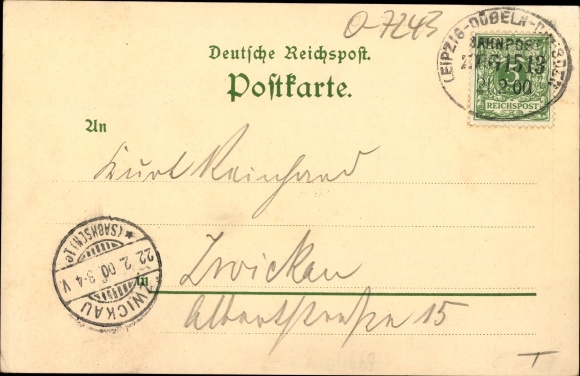 O-7243
LEIPZIG-DÖBELN-DRESDEN
BAHNPOST
ZUG 1513
2 00
5
REICHSPOST
Deutsche Reichspost.
Postkarte.
An
Kurt Reinhard
in Zwickau
Albertstraße 15
ZWICKAU
(SACHSEN) 1e
22. 2. 00 3-4 V.